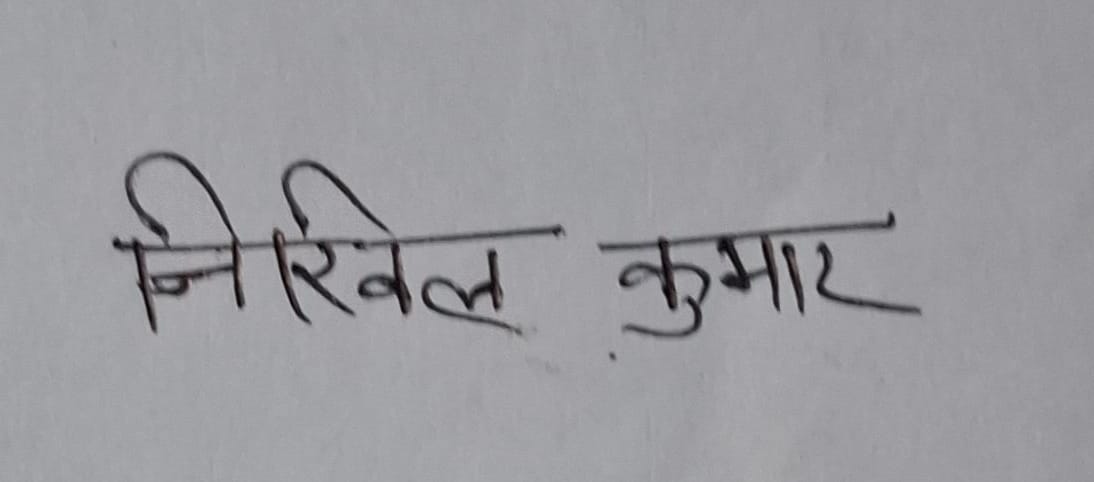 निखिल कुमार